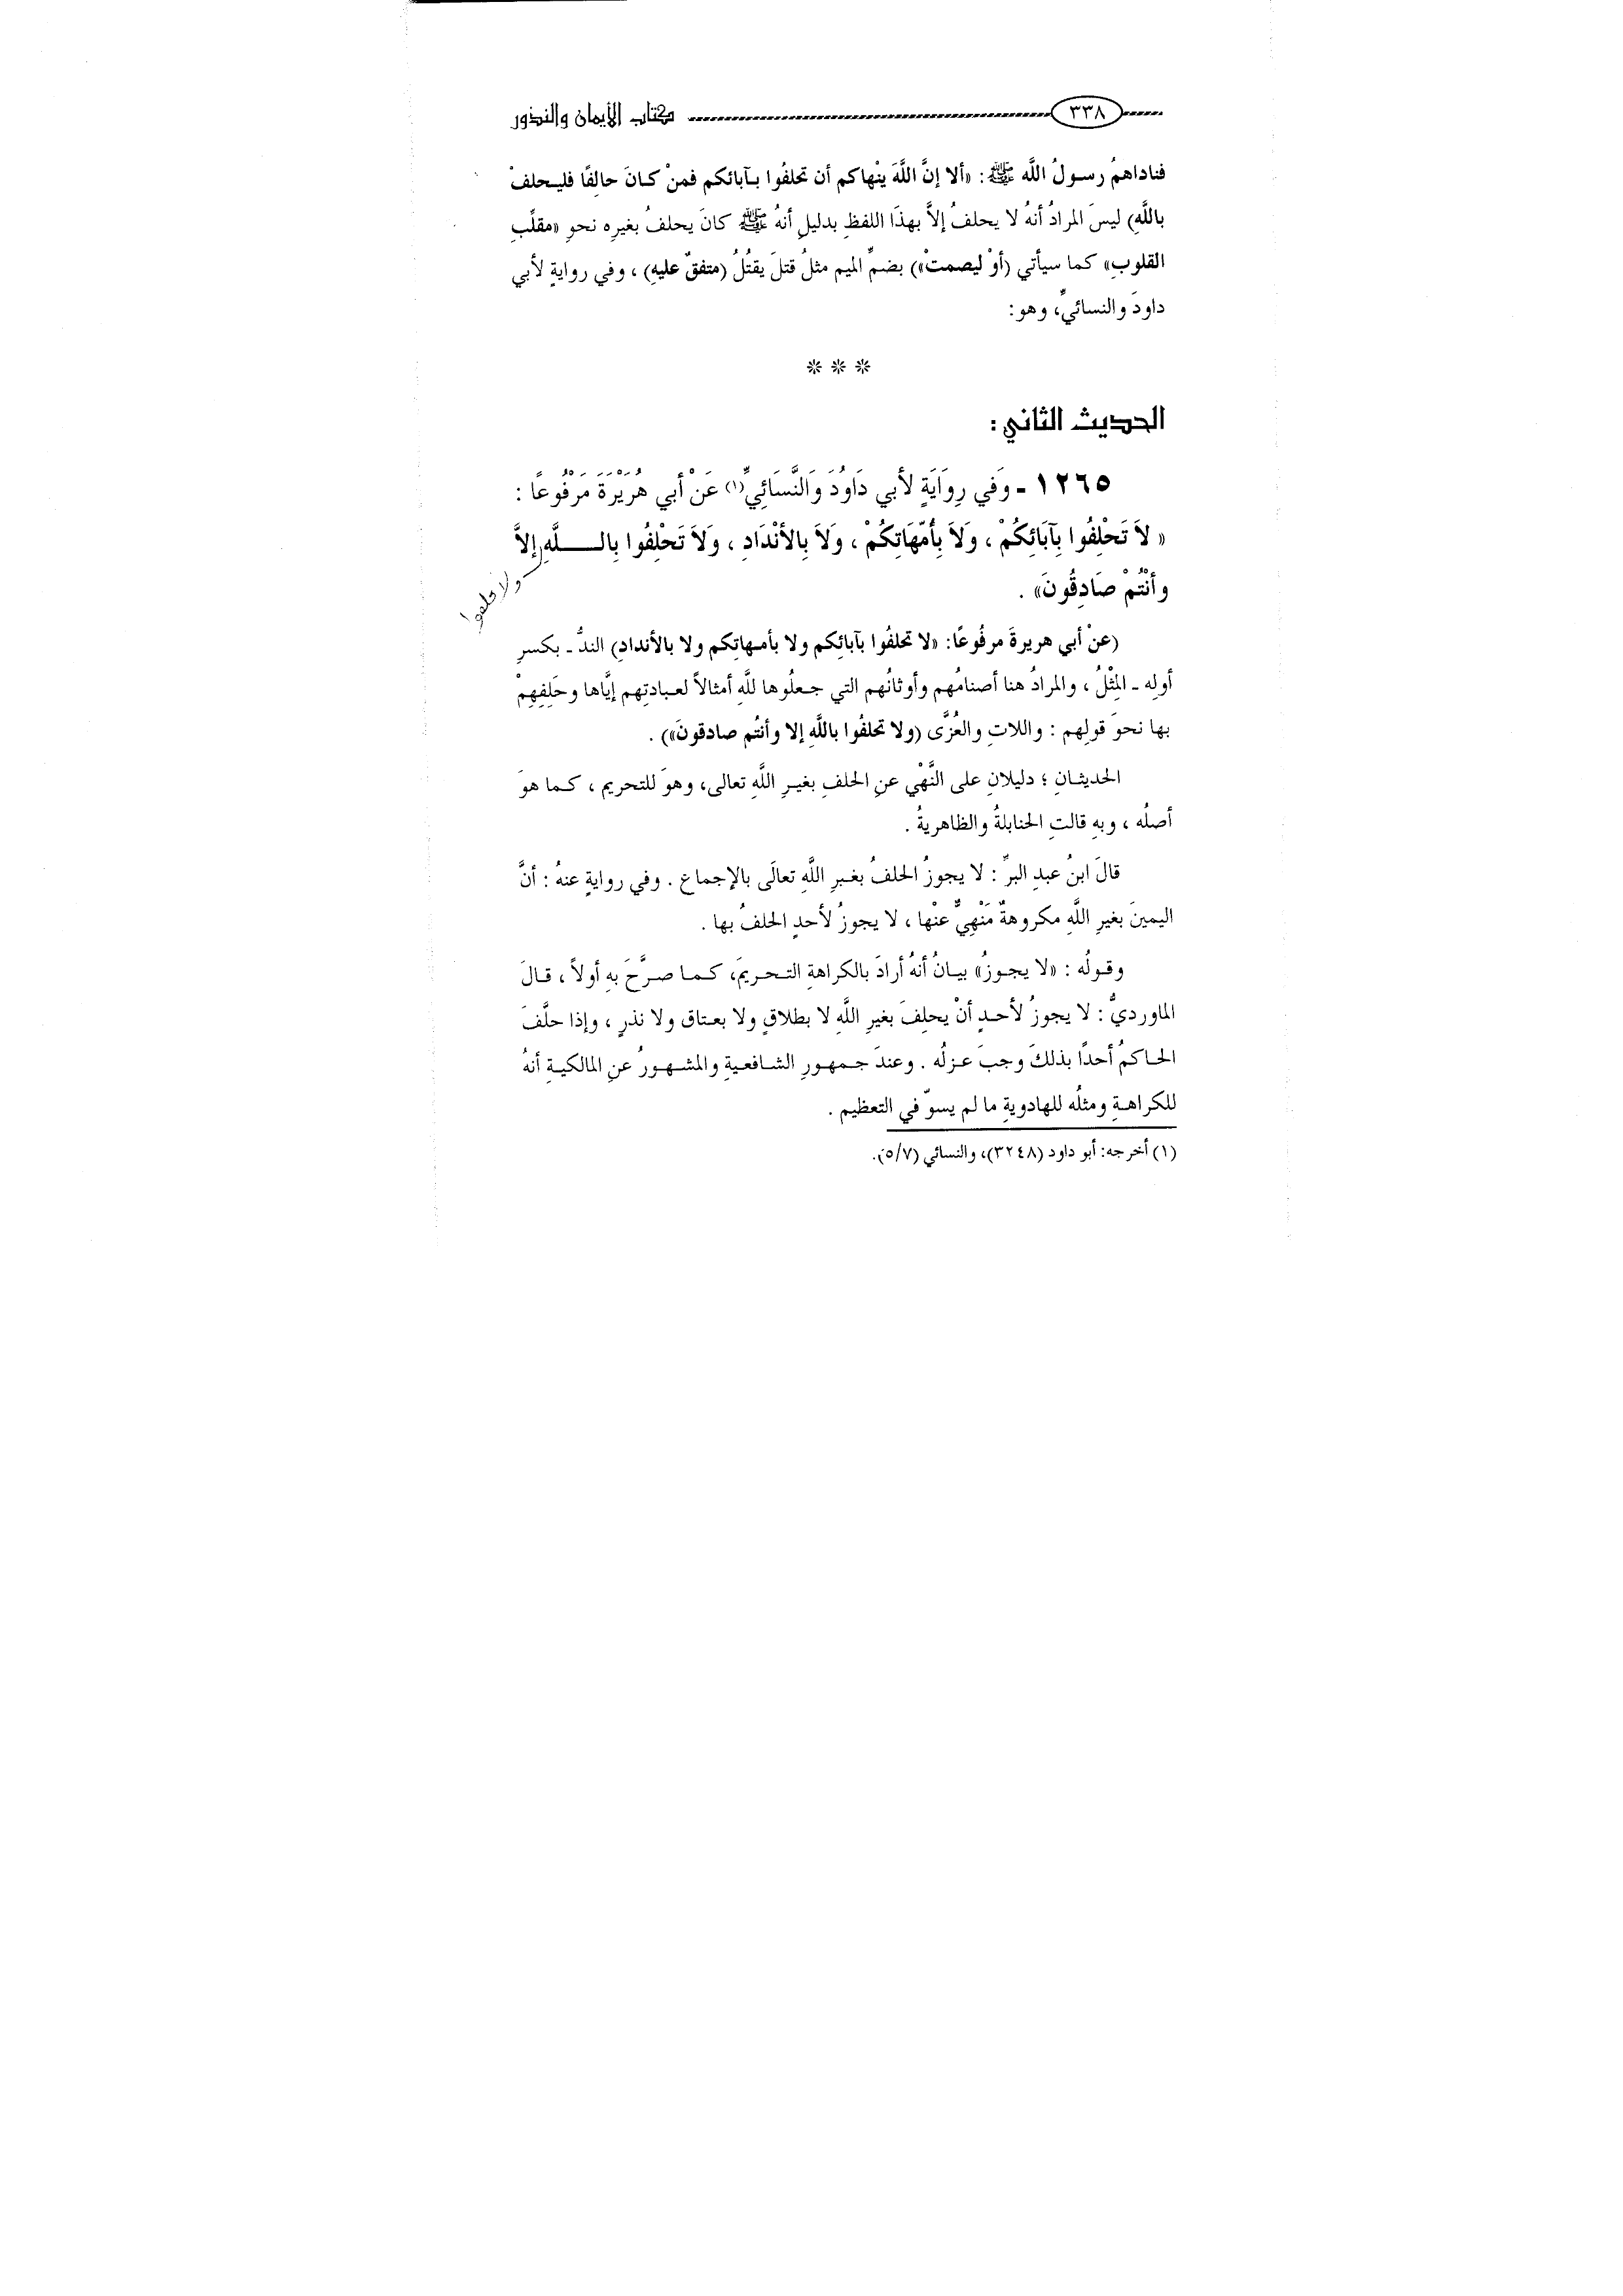 ٣٣٨ كتاب الأيمان والنذور
فناداهمُ رسولُ اللَّه ﷺ: «ألا إنَّ اللَّهَ ينْهاكم أن تحلفُوا بآبائكم فمنْ كانَ حالِفًا فليحلفْ
باللَّهِ) ليسَ المرادُ أنهُ لا يحلفُ إلاَّ بهذَا اللفظِ بدليلِ أنهُ ﷺ كانَ يحلفُ بغيرِه نحوِ «مقلِّبِ
القلوبِ» كما سيأتي (أوْ ليصمتْ») بضمِّ الميم مثلُ قتلَ يقتُلُ (متفقٌ عليهِ) ، وفي روايةٍ لأبي
داودَ والنسائيِّ، وهو:
* * *
الحديث الثاني:
١٢٦٥ - وَفي رِوَايَةٍ لأبي دَاوُدَ وَالنَّسَائِيِّ(١) عَنْ أبي هُرَيْرَةَ مَرْفُوعًا :
« لاَ تَحْلِفُوا بِآبَائِكُمْ ، وَلاَ بِأُمّهَاتِكُمْ ، وَلاَ بِالأَنْدَادِ ، وَلاَ تَحْلِفُوا بِاللَّهِ إلاَّ
ولا تحلفوا
وأَنْتُمْ صَادِقُونَ» .
(عنْ أبي هريرةَ مرفُوعًا: «لا تحلفُوا بآبائِكم ولا بأمهاتِكم ولا بالأندادِ) الندُّ ـ بكسرِ
أولِه ـ المِثْلُ ، والمرادُ هنا أصنامُهم وأوثانُهم التي جعلُوها للَّهِ أمثالاً لعبادتِهم إيَّاها وحَلِفِهِمْ
بها نحوَ قولِهم : واللاتِ والعُزَّى (ولا تحلفُوا باللَّهِ إلا وأنتُم صادقونَ») .
الحديثانِ ؛ دليلانِ على النَّهْي عنِ الحلفِ بغيرِ اللَّهِ تعالى، وهوَ للتحريم ، كما هوَ
أصلُه ، وبهِ قالتِ الحنابلةُ والظاهريةُ .
قالَ ابنُ عبدِ البرِّ : لا يجوزُ الحلفُ بغيرِ اللَّهِ تعالَى بالإجماع . وفي روايةٍ عنهُ : أنَّ
اليمينَ بغيرِ اللَّهِ مكروهةٌ مَنْهِيٌّ عنْها ، لا يجوزُ لأحدٍ الحلفُ بها .
وقولُه : «لا يجوزُ» بيانُ أنهُ أرادَ بالكراهةِ التحريمَ، كما صرَّحَ بهِ أولاً ، قالَ
الماورديُّ : لا يجوزُ لأحدٍ أنْ يحلِفَ بغيرِ اللَّهِ لا بطلاقٍ ولا بعتاق ولا نذرٍ ، وإذا حلَّفَ
الحاكمُ أحدًا بذلكَ وجبَ عزلُه . وعندَ جمهورِ الشافعيةِ والمشهورُ عنِ المالكيةِ أنهُ
للكراهةِ ومثلُه للهادويةِ ما لم يسوّ في التعظيم .
(١) أخرجه: أبو داود (٣٢٤٨)، والنسائي (٥/٧).